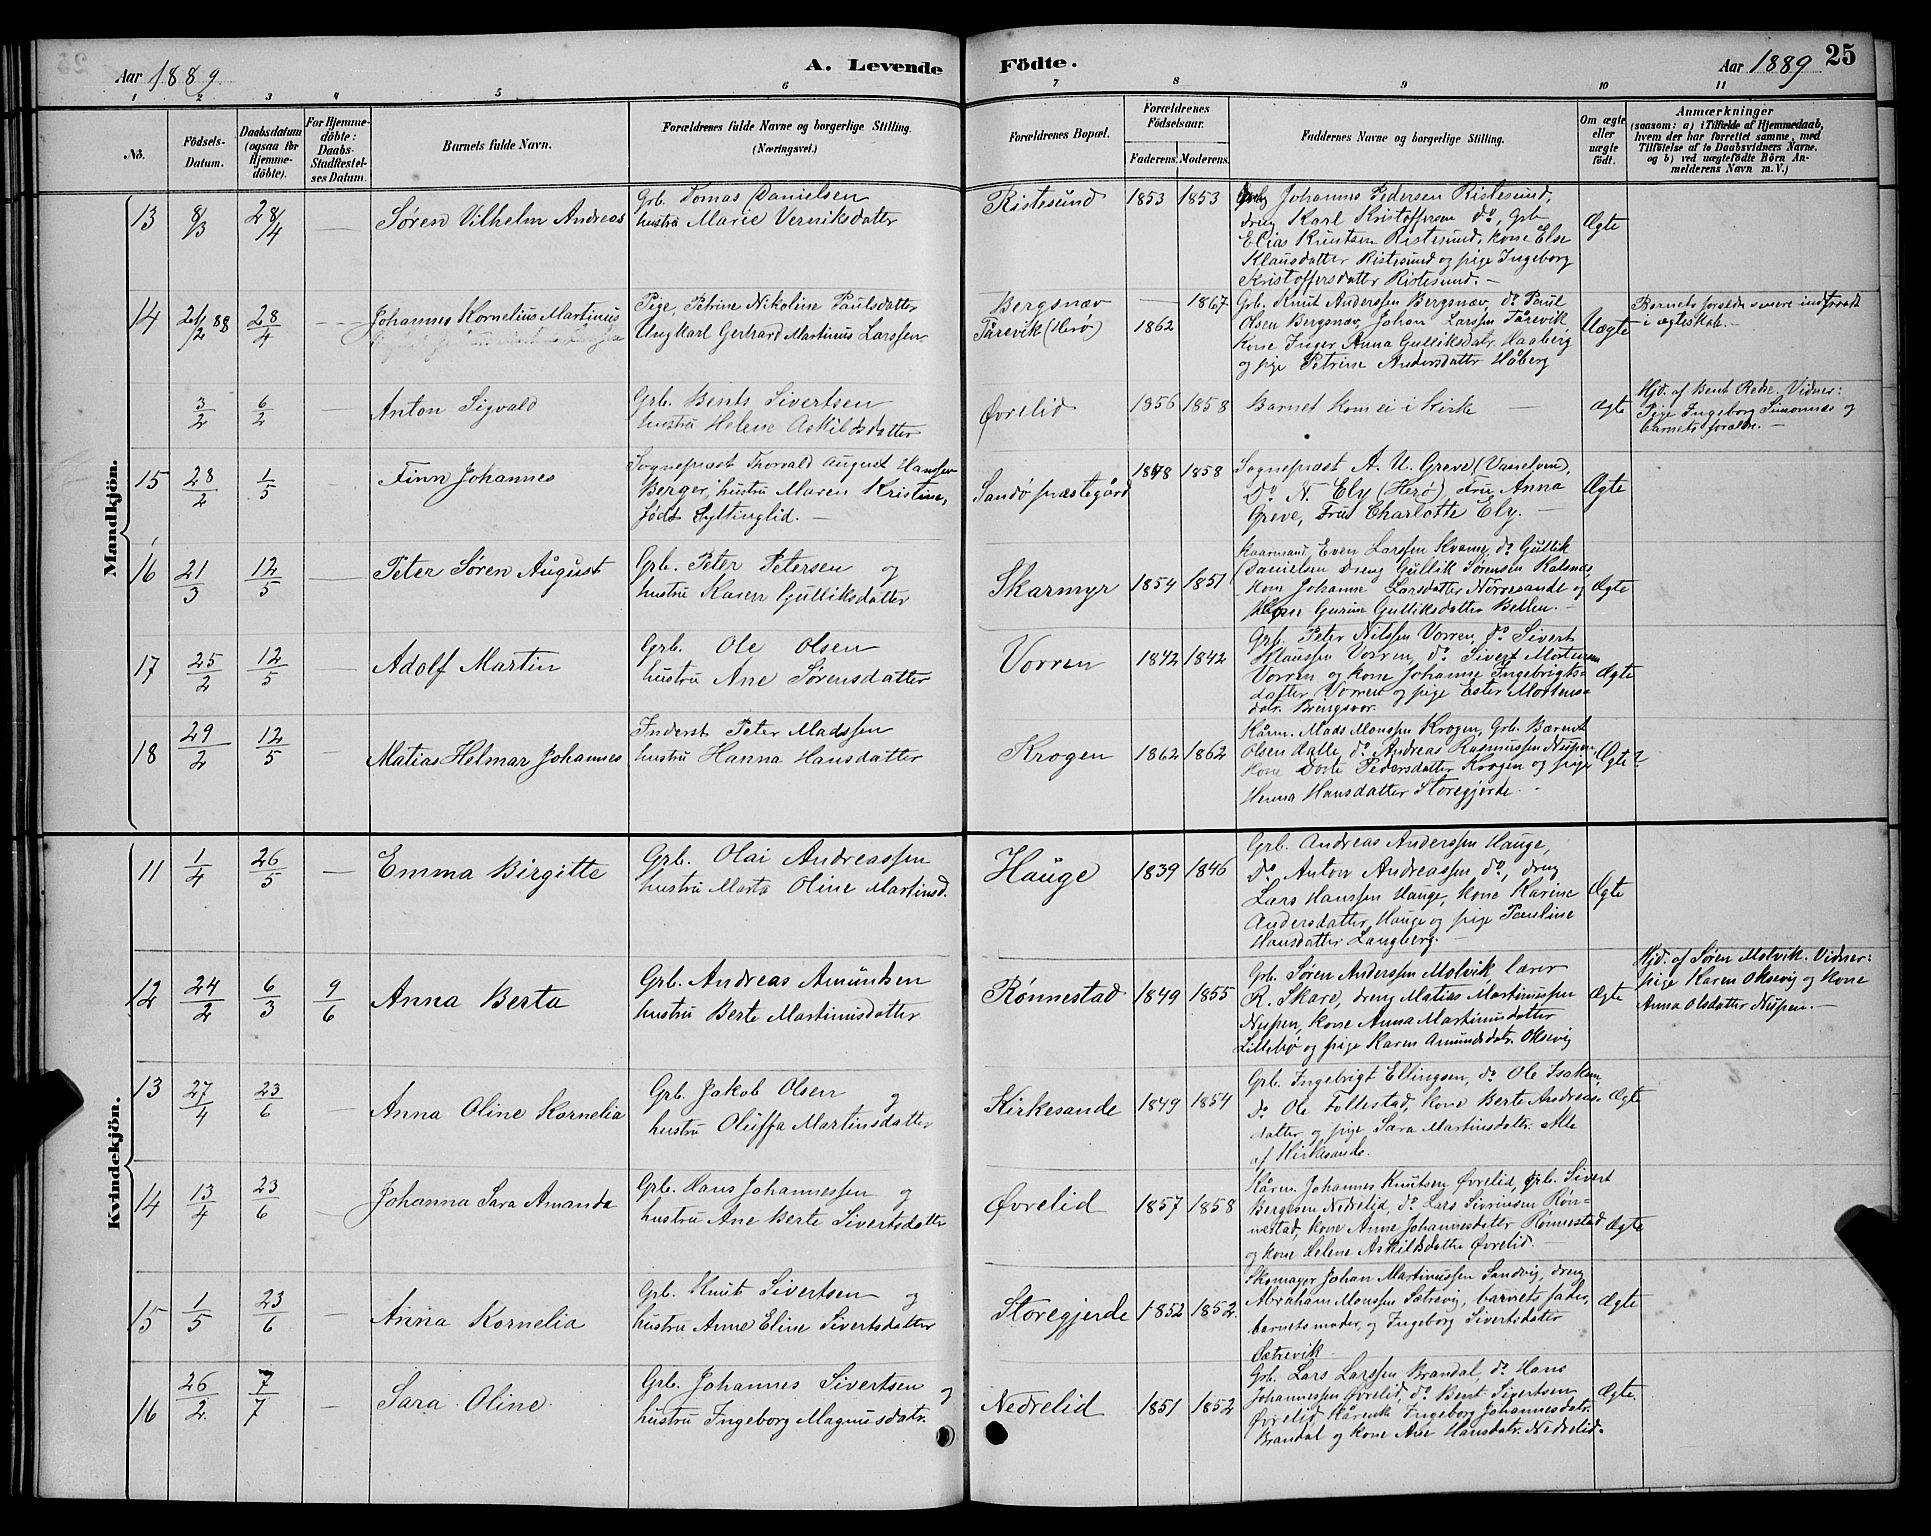 Aar 1889.
A. Levende Födte.
Aar 1889
25
1 2 3 4 5 6 7 8 9 10 11
No.
Födsels-
Datum.
Daabsdatum
(ogsaa för
Hjemme-
döbte).
For Hjemme-
döbte:
Daabs-
Stadfæstel-
ses Datum.
Barnets fulde Navn.
Forældrenes fulde Navne og borgerlige Stilling.
(Næringsvei.)
Forældrenes Bopæl.
Forældrenes
Födselsaar.
Faderens. Moderens.
Faddernes Navne og borgerlige Stilling.
Om ægte
eller
uægte
födt.
Anmærkninger
(saasom: a) i Tilfælde af Hjemmedaab,
hvem der har forrettet samme, med
Tilföielse af to Daabsvidners Navne.
og b) ved uægtefödte Börn An-
melderens Navn m. V.)
Mandkjön.
13 8/3 28/4 — Søren Vilhelm Andreas
Grb. Tomas Danielsen
hustru Marie Verniksdatter
Ristesund 1853 1853
Johannes Pedersen Ristesund,
dreng Karl Kristoffersen do, Grb
Elias Knutsen Ristesund, kone Else
Klausdatter Ristesund og pige Ingeborg
Kristoffersdatter Ristesund. —
Ægte
14 21/2 88 28/4 — Johannes Kornelius Martinus
Pige, Petrine Nikoline Paulsdatter
Ungkarl Gerhard Martinus Larssen
Bergsnæv — 1867
Tårevik (Herø) 1862
Grb. Knut Anderssen Bergsnæv, do Paul
Olsen Bergsnæv, Johan Larssen Tårevik
Kone Inger Anna Gulliksdatr. Haaberg
og pige Petrine Andersdatter Håberg
Uægte
Barnets foreldre senere indtraadt
i ægteskab. —
3/2 6/2 Anton Sigvald
Grb. Bents Sivertsen
hustru Helene Askildsdatter
Øvrelid 1856 1858
Barnet kom ei i kirke —
Ægte
Hjd. af Bent Rødse. Vidner:
Pige Ingeborg Simonnes og
barnets foreldre. —
15 28/2 1/5 Finn Johannes
Sognepræst Thorvald August Hanssen
Berger, hustru Maren Kristine,
født Syltinglid. —
Sandø præstegård 1848 1858
Sognepræst A. U. Greve (Vanelven),
Do N. Ely (Herø), Frue Anna
Greve, Frue Charlotte Ely. —
Ægte
16 21/3 12/5 — Peter Søren August
Grb. Peter Petersen og
hustru Karen Gulliksdatter
Skarmyr 1854 1851
Kaarmand Even Larssen Kvamg, do Gullik
Danielsen Dreng Gullik Sørensen Kalsnes,
kone Johanne Larsdatter Nørresande og
kone Gurine Gulliksdatter Betlen. —
Ægte
17 25/2 12/5 — Adolf Martin
Grb. Ole Olsen
hustru Ane Sørensdatter
Vorren 1842 1842
Grb. Peter Nilssen Vorren, do Sivert
Klaussen Vorren, do Sivert Mortensen
Vorren og kone Johanne Ingebrigts-
datter Vorren og pige Ester Mortens-
datr. Bringsvor.
Ægte
18 29/2 12/5 — Matias Helmar Johannes
Inderst Peter Madssen
hustru Hanna Hansdatter
Krogen 1862 1862
Kårm. Mads Monssen Krogen, Grb. Bærent
Olsen Dalle, do Andreas Rasmussen Nupen
kone Dorte Pedersdatter Krogen og pige
Henna Hansdatter Storegjerde. —
Ægte?
Kvindekjön.
11 1/4 26/5 — Emma Birgitte
Grb. Olai Andreassen
hustru Marta Oline Martinsd.
Hauge 1839 1846
Grb. Andreas Anderssen Hauge,
Do, Anton Andreassen, do, dreng
Lars Hanssen Hauge, kone Karine
Andersdatter, Hauge og pige Pauline
Hansdatter Langberg. —
Ægte
12 24/2 6/3 9/6 Anna Berta
Grb. Andreas Amundsen
hustru Berte Martinusdatter
Rønnestad 1849 1855
Grb. Søren Anderssen Molvik lærer
R. Skare, dreng Matias Martinussen
Nupen, kone Anna Martinusdatter
Lillebø og pige Karen Amundsdatr. Oksevig
Ægte
Hjd. af Søren Molvik. Vidner:
pige Karen Oksevig og kone
Anna Olsdatter Nupen. —
13 27/4 23/6 — Anna Oline Kornelia
Grb. Jakob Olsen og
hustru Oluffa Martinsdatter
Kirkesande 1849 1854
Grb. Ingebrigt Ellingsen, do Ole Isaksen,
do Ole Follestad, kone Berte Andreas-
datter og pige Sara Martinsdatter. Alle
af Kirkesande.
Ægte
14 13/4 23/6 — Johanna Sara Amanda
Grb. Hans Johannessen og
hustru Ane Berte Sivertsdatter
Øvrelid 1857 1858
Kårm. Johannes Knutsen Øvrelid, grb. Sivert
Bergesen Nedrelid, do Lars Sivrinsen Røn-
nestad, kone Anne Johannesdatter Rønnestad
og kone Helene Askildsdatter Øvrelid. —
Ægte
15 1/5 23/6 — Anna Kornelia
Grb. Knut Sivertsen og
hustru Anne Eline Sivertsdatter
Storegjerde 1852 1852.
Skomager Johan Martinussen Sandvig, dreng
Abraham Monssen Sætrevig, barnets fader,
barnets moder, og Ingeborg Sivertsdatter
Sætrevik
Ægte
16 26/2 7/7 — Sara Oline.
Grb. Johannes Sivertsen og
hustru Ingeborg Magnusdatr.
Nedrelid 1851 1852
Grb. Lars Larssen Brandal, do Hans
Johannessen Øvrelid, do Bent Sivertsen
Øvrelid Kårenke Ingeborg Johannesdatr.
Brandal og kone Ane Hansdatr. Nedrelid.
Ægte